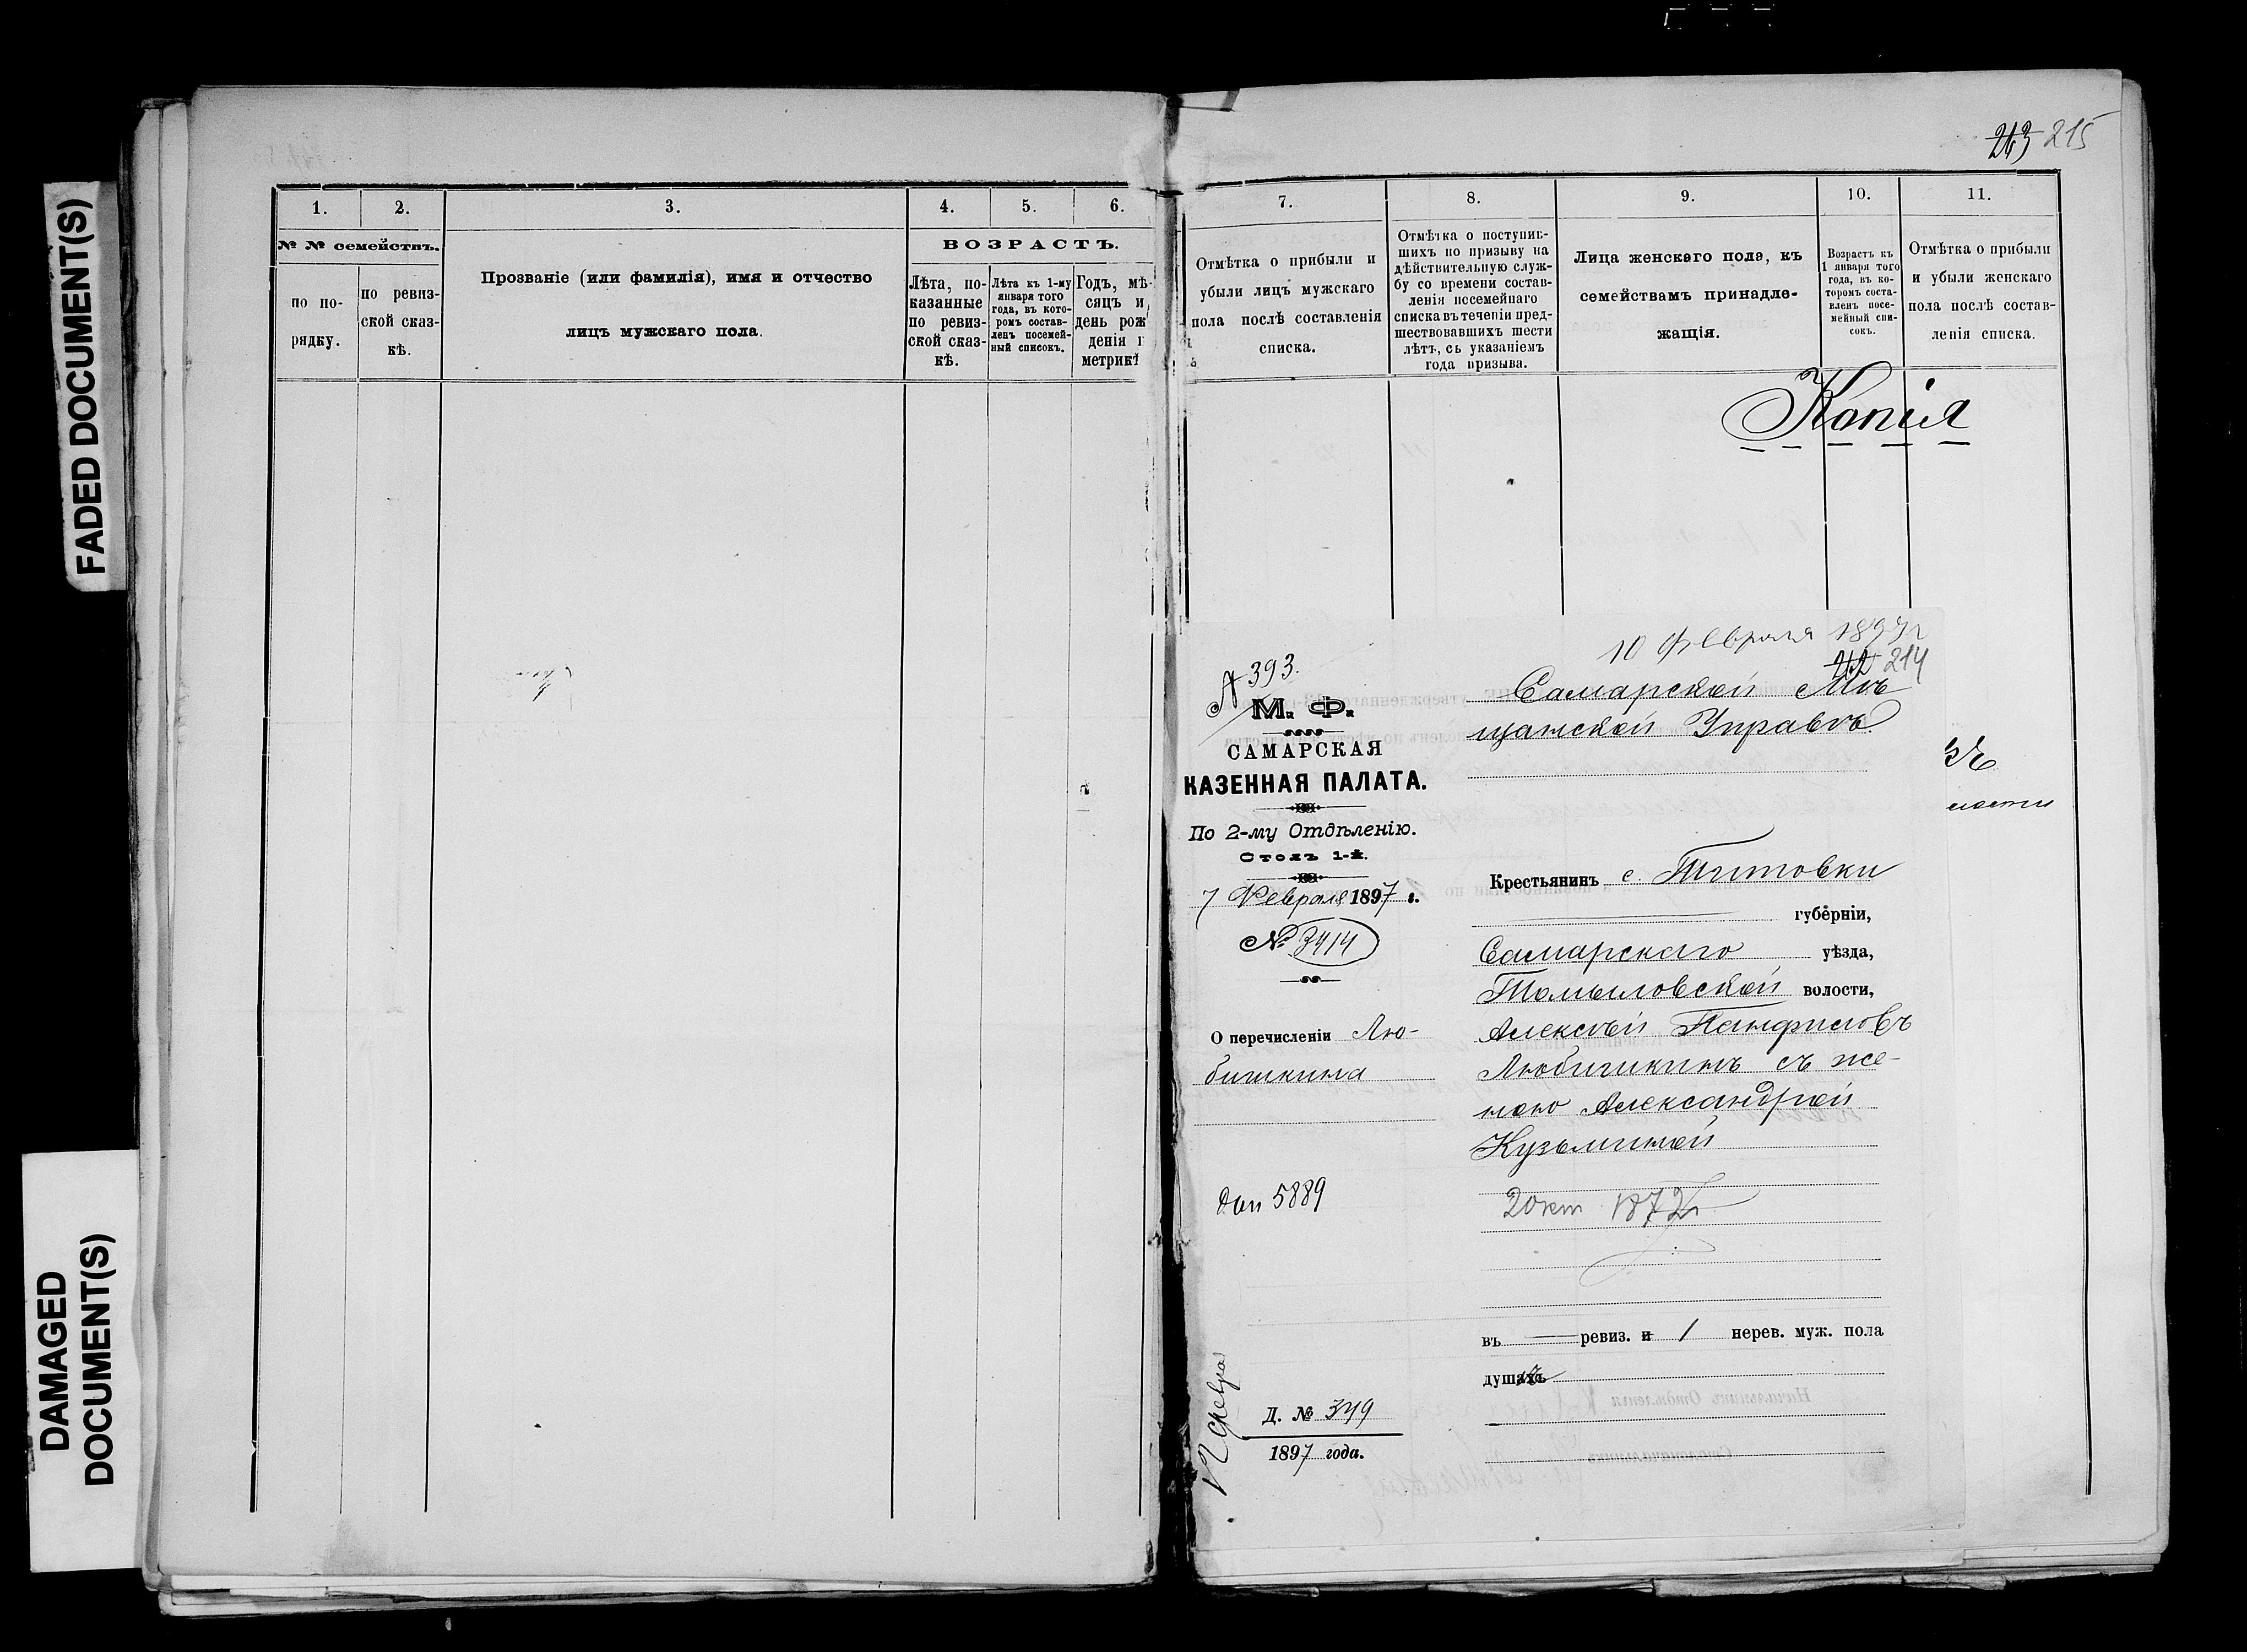 FADED DOCUMENT(S)
DAMAGED
DOCUMENT(S)
1.
2.
3.
4.
5.
6.
№ № семействъ.
ВОЗРАСТЪ.
по по-
рядку.
по ревиз-
ской сказ-
кѣ.
Прозваніе (или фамилія), имя и отчество
лицъ мужскаго пола.
Лѣта, по-
казанные
по ревиз-
ской сказ-
кѣ.
Лѣта къ 1-му
января того
года, въ кото-
ромъ состав-
ленъ посемей-
ный списокъ.
Годъ, мѣ-
сяцъ и
день рож
денія п
метрикѣ
215
7.
8.
9.
10.
11.
Отмѣтка о прибыли и
убыли лицъ мужскаго
пола послѣ составленія
списка.
Отмѣтка о поступив-
шихъ по призыву на
дѣйствительную служ-
бу со времени состав-
ленія посемейнаго
списка въ теченіи пред-
шествовавшихъ шести
лѣтъ, съ указаніемъ
года призыва.
Лица женскаго пола, къ
семействамъ принадле-
жащія.
Возрастъ къ
1 января того
года, въ ко-
торомъ соста-
вленъ посе-
мейный спи-
сокъ.
Отмѣтка о прибыли
и убыли женскаго
пола послѣ состав-
ленія списка.
Копія
10 Февраля 1897 г
214
№ 393.
М. Ф.
САМАРСКАЯ
КАЗЕННАЯ ПАЛАТА.
По 2-му Отдѣленію.
Столъ 1-й.
7 Февраля 1897 г.
№ 3414
О перечисленіи Лю-
бишкина
5889
Д. № 349
1897 года.
Самарской Мѣ
щанской Управѣ
Крестьянинъ с. Титовки
губерніи,
Самарскаго уѣзда,
Томыловской волости,
Алексѣй Панфиловъ
Любишкинъ съ же-
ною Александрой
Кузьминой
2 окт 1872 г
въ ревиз. и 1 нерев. муж. пола
душахъ